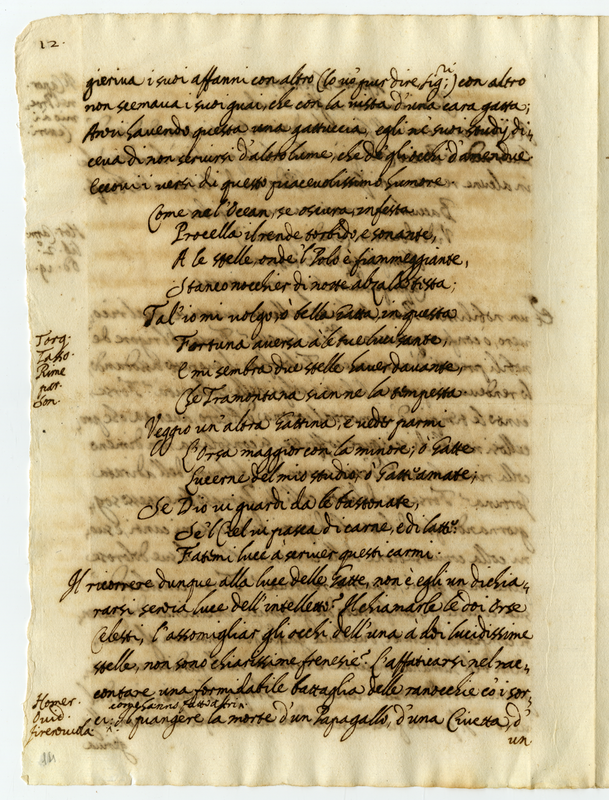 12.
gieriva i suoi affanni con altro (lo vò pur dire sig:ri) con altro
non scemava i suoi guai, che con la vista d'una cara gatta;
Anzi havendo questa una gattuccia, egli ne' suoi studij di-
ceva di non servirsi d'altro lume, che de gli occhi d'amendue
eccovi i versi di questo piacevolissimo humore
Come nel'Ocean, se oscura, infesta
Procella il rende torbido, e sonante,
A le stelle, onde 'l Polo è fiammeggiante,
Stanco nocchier di notte alza la testa;
Tal'io mi volgo, ò bella Gatta, in questa
Fortuna aversa à le tue luci sante,
E mi sembra due stelle haver davante,
Che Tramontana sian ne la tempesta
Veggio un'altra Gattina, e veder parmi
L'Orsa maggior con la minore; ò Gatte
Lucerne del mio studio, ò Gatte amate;
Se Dio vi guardi da le bastonate,
Se 'l Ciel vi pasca di carne, e di latte.
Fatemi luce à scriver questi carmi.
Torq:
Tasso.
Rime
par.
Son.
Il ricorrere dunque alla luce delle Gatte, non è egli un dichia-
rarsi senza luce dell'intelletto? Il chiamarle le doi Orse
Celesti, l'assomigliar gli occhi dell'una à doi lucidissime
stelle, non sono chiarissime frenesie? L'affaticarsi nel rac-
contare una formidabile battaglia delle ranocchie co' i sor-
ci, il piangere la morte d'un Papagallo, d'una Civetta, d'
come hanno fatto altri
un
Homer.
Ovid.
firenzuola